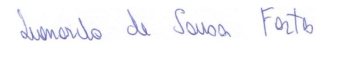 Leonardo de Sousa Fortes